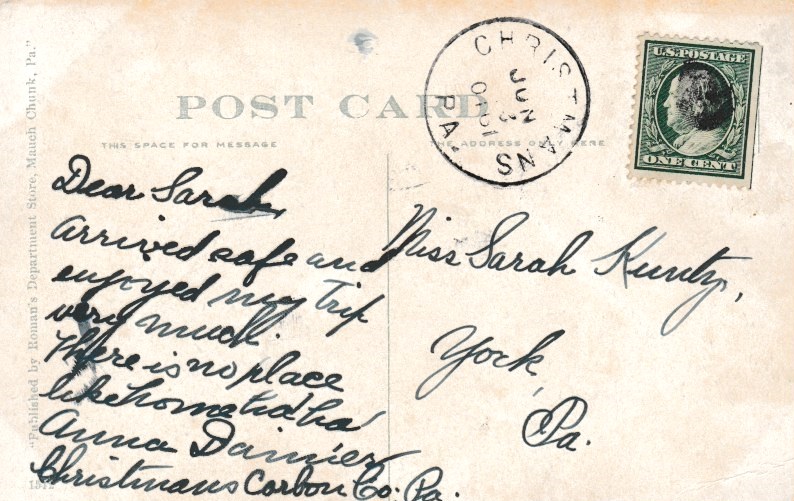 POST CARD
THIS SPACE FOR MESSAGE
THE ADDRESS ONLY HERE
CHRISTMANS PA.
JUN
3
1910
U.S. POSTAGE
ONE CENT
"Published by Roman's Department Store, Mauch Chunk, Pa."
Dear Sarah,
Arrived safe and
enjoyed my trip
very much.
There is no place
like home ha! ha!
Anna Damier
Christmans Carbon Co. Pa.
Miss Sarah Kuntz,
York,
Pa.